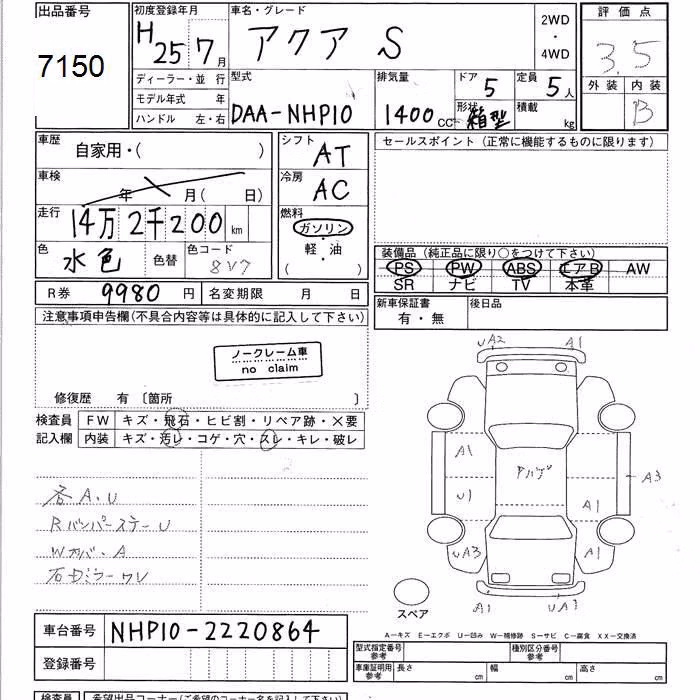 出品番号 初度登録年月 車名・グレード 2WD・4WD 評価点
7150 H25 7月 アクア S 3.5
ディーラー・並行 型式 排気量 ドア 5 定員 5人 外装 内装
モデル年式 年 DAA-NHP10 1400cc 形状 箱型 積載 kg B
ハンドル 左・右
車歴 自家用・( ) シフト AT セールスポイント(正常に機能するものに限ります)
車検 年 月( 日) 冷房 AC
走行 14万2千200km 燃料 ガソリン・軽・油 ( )
色 水色 色替 色コード 8V7
装備品(純正品に限り○をつけて下さい)
PS PW ABS エアB AW
SR ナビ TV 本革
R券 9980円 名変期限 月 日 新車保証書 有・無 後日品
注意事項申告欄(不具合内容等は具体的に記入して下さい)
ノークレーム車
no claim
修復歴 有〔箇所 〕
検査員 FW キズ・飛石・ヒビ割・リペア跡・×要
記入欄 内装 キズ・汚レ・コゲ・穴・スレ・キレ・破レ
各A.U
Rバンパーステー U
Wカバ.A
UA2 A1
A1 A3
U1 A1
UA3 A1
A1 UA1
スペア
A―キズ E―エクボ U―凹み W―補修跡 S―サビ C―腐食 XX―交換済
車台番号 NHP10-2220864
登録番号
型式指定番号 参考 種別区分番号 参考
車庫証明用 参考 長さ cm 幅 cm 高さ cm
検査員 希望出品コーナー(ご希望のコーナー名を記入下さい)